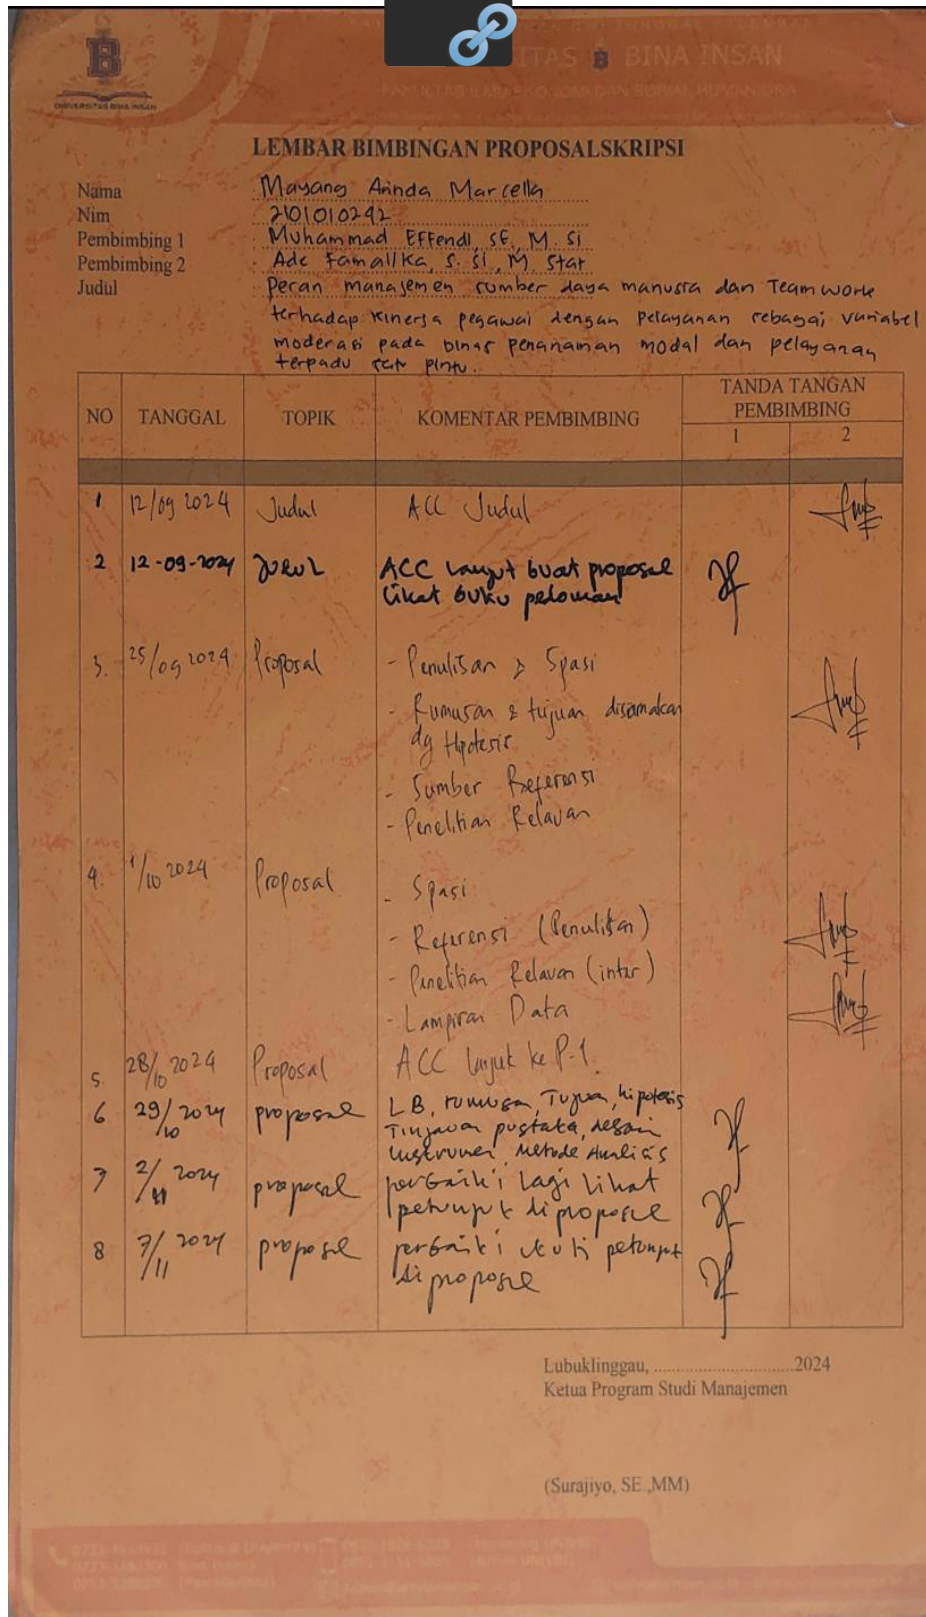 UNIVERSITAS BINA INSAN
ITAS B BINA INSAN
FAKULTAS ILMU EKONOMI DAN SOSIAL HUMANIORA
LEMBAR BIMBINGAN PROPOSALSKRIPSI
Nama Mayang Arinda Marcella
Nim 2101010292
Pembimbing 1 Muhammad Effendi, SE, M. Si
Pembimbing 2 Ade Famalika, S. Si, M. Stat
Judul Peran manajemen sumber daya manusia dan Teamwork
terhadap kinerja pegawai dengan pelayanan sebagai variabel
moderasi pada Dinas penanaman modal dan pelayanan
terpadu satu pintu.
NO TANGGAL TOPIK KOMENTAR PEMBIMBING TANDA TANGAN PEMBIMBING
1 2
1 12/09 2024 Judul ACC Judul
2 12-09-2024 JUDUL ACC lanjut buat proposal
lihat buku pedoman
3. 25/09 2024 Proposal - Penulisan & Spasi
- Rumusan & tujuan disamakan
dg Hipotesis
- Sumber Referensi
- Penelitian Relavan
4. 1/10 2024 Proposal - Spasi
- Referensi (Penulisan)
- Penelitian Relavan (inter)
- Lampiran Data
5. 28/10 2024 Proposal ACC lanjut ke P-1.
6 29/10 2024 proposal LB, rumusan, Tujuan, hipotesis
Tinjauan pustaka, desain
instrumen, Metode Analisis
7 2/11 2024 proposal perbaiki lagi lihat
petunjuk di proposal
8 7/11 2024 proposal perbaiki ikuti petunjuk
di proposal
Lubuklinggau, ..............................2024
Ketua Program Studi Manajemen
(Surajiyo, SE.,MM)